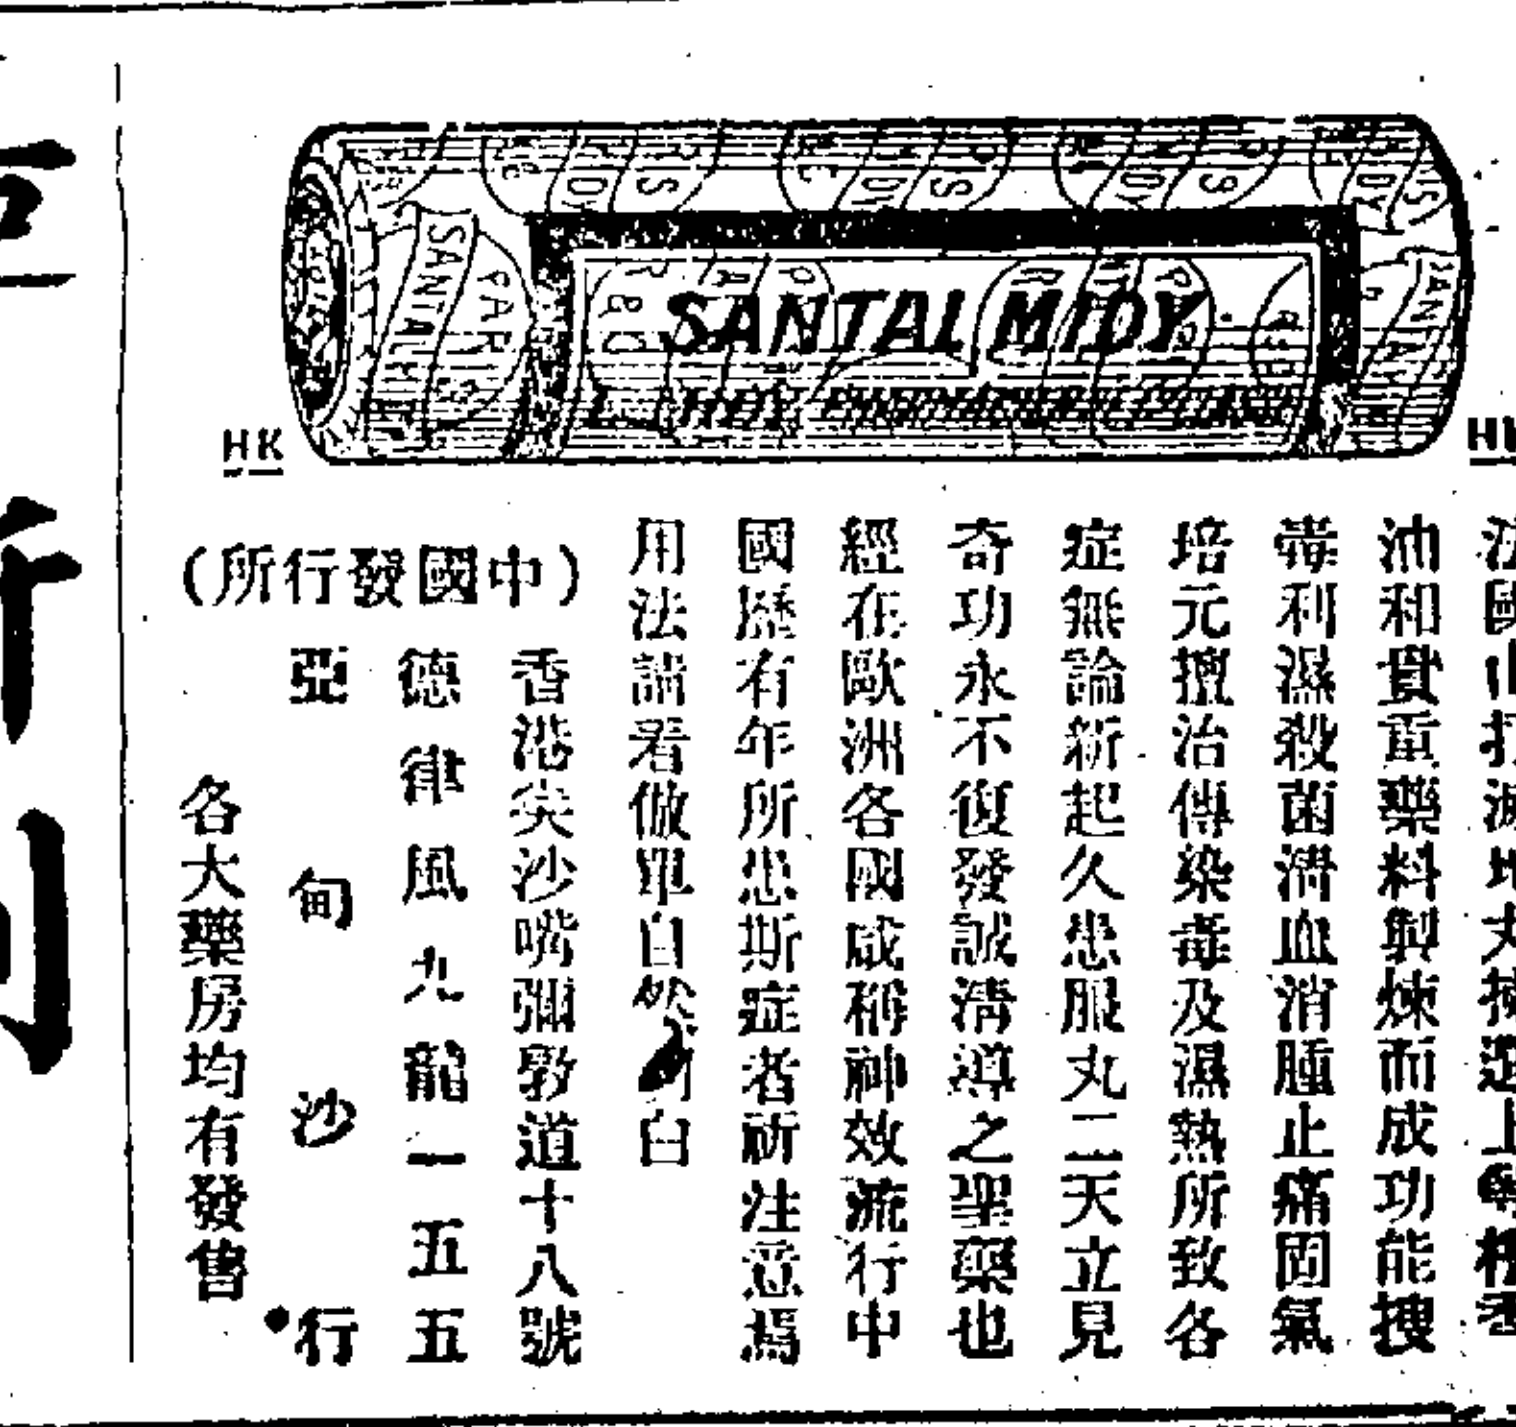 SANTAL MIDY
SANTAL
PARIS
HK
法國山打滅地丸揀選上等檀香
油和貴重藥料製煉而成功能搜
毒利濕殺菌清血消腫止痛固氣
培元擅治傳染毒及濕熱所致各
症無論新起久患服丸二天立見
奇功永不復發誠淸導之聖藥也
經在歐洲各國咸稱神效流行中
國歷有年所患斯症者祈注意焉
用法請看倣單自然明白
(中國發行所)
香港尖沙嘴彌敦道十八號
德律風九龍一五五五
亞甸沙行
各大藥房均有發售